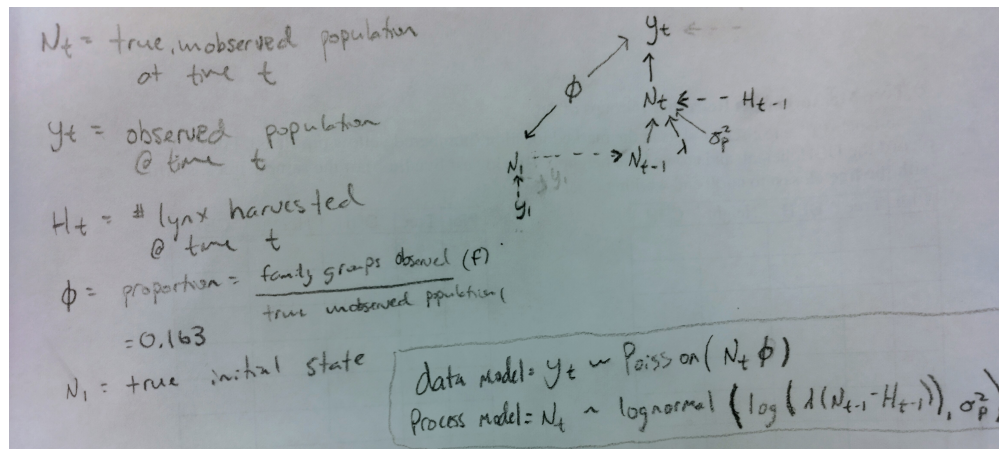 Nt = true, unobserved population
at time t
yt = observed population
@ time t
Ht = # lynx harvested
@ time t
ϕ = proportion = family groups observed (f)
true unobserved population (
= 0.163
N1 = true initial state
yt
ϕ
Nt Ht-1
σp²
N1 Nt-1 λ
y1
y1
data model = yt ~ Poisson(Nt ϕ)
Process model = Nt ~ lognormal (log(λ(Nt-1-Ht-1)), σp²)